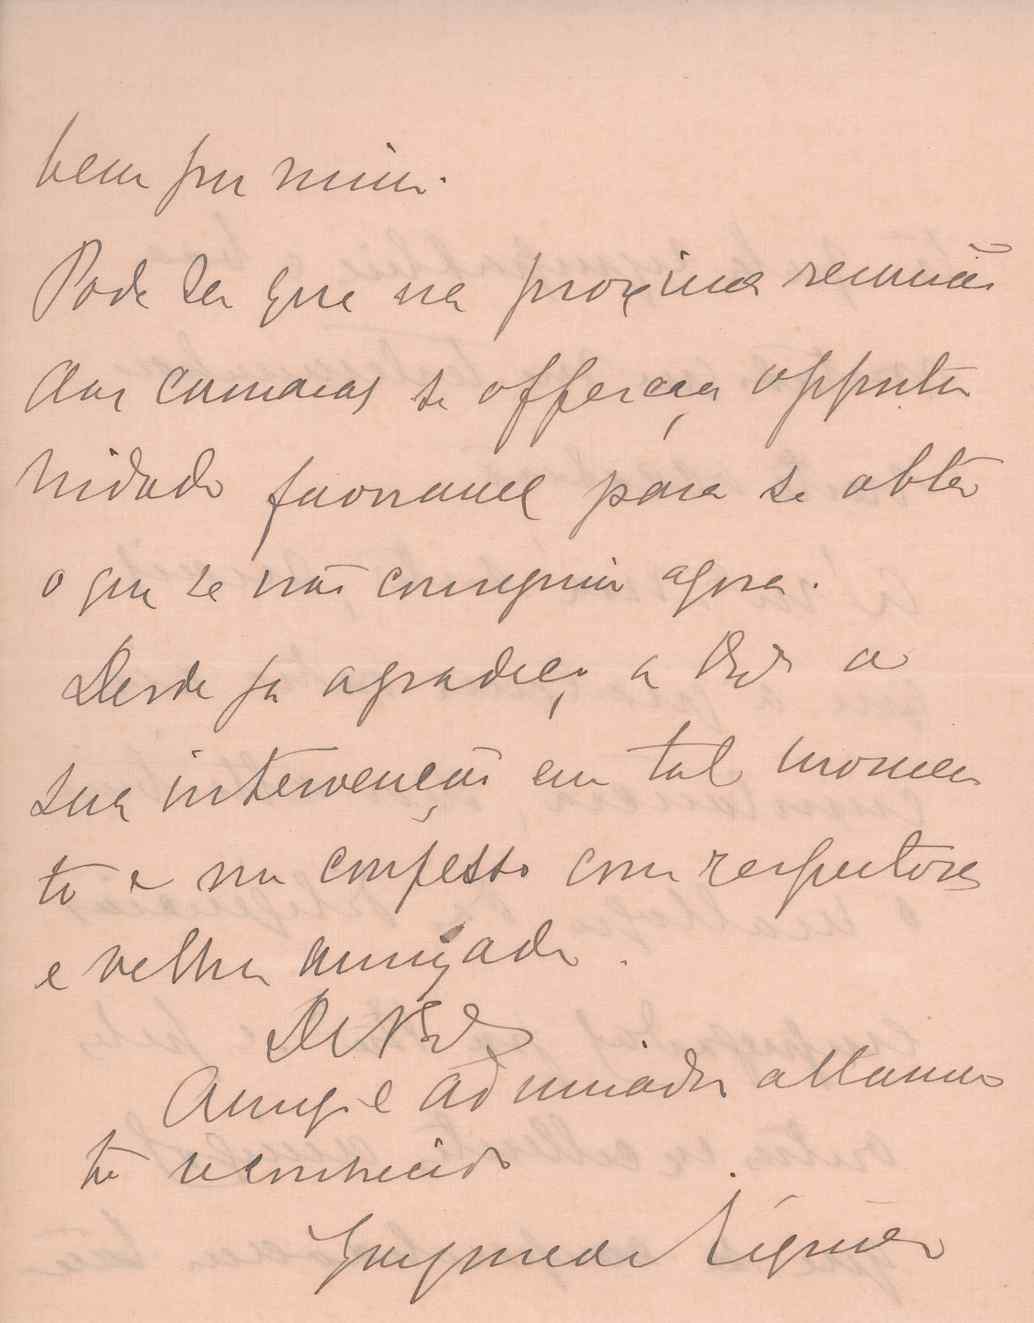 bem por mim.
Pode ser que na proxima reunião
das camaras se offereça opportu
nidade favoravel para se obter
o que se não conseguiu agora.
Desde ja agradeço a VExª a
sua intervenção em tal momen
to e me confesso com respeitosa
e velha amizade.
De VExª
Amigº e admirador altamen
te reconhecido